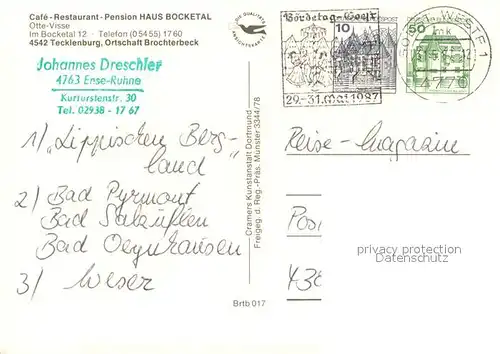 Café-Restaurant-Pension HAUS BOCKETAL
Otte-Visse
Im Bocketal 12 · Telefon (0 54 55) 17 60
4542 Tecklenburg, Ortschaft Brochterbeck
Johannes Dreschler
4763 Ense-Ruhne
Kurfürstenstr. 30
Tel. 02938 - 17 67
1) "Lippischen Berg-
land"
2) Bad Pyrmont
Bad Salzuflen
Bad Oeynhausen
3) Weser
DIE QUALITÄTS
ANSICHTSKARTE
Cramers Kunstanstalt Dortmund
Freigeg. d. Reg.-Präs. Münster 3344/78
Brtb 017
Bördetag-Soest
29.-31. Mai 1987
10
50
WESTF 1
4770
Reise-Magazin
Pos
438
privacy protection
Datenschutz